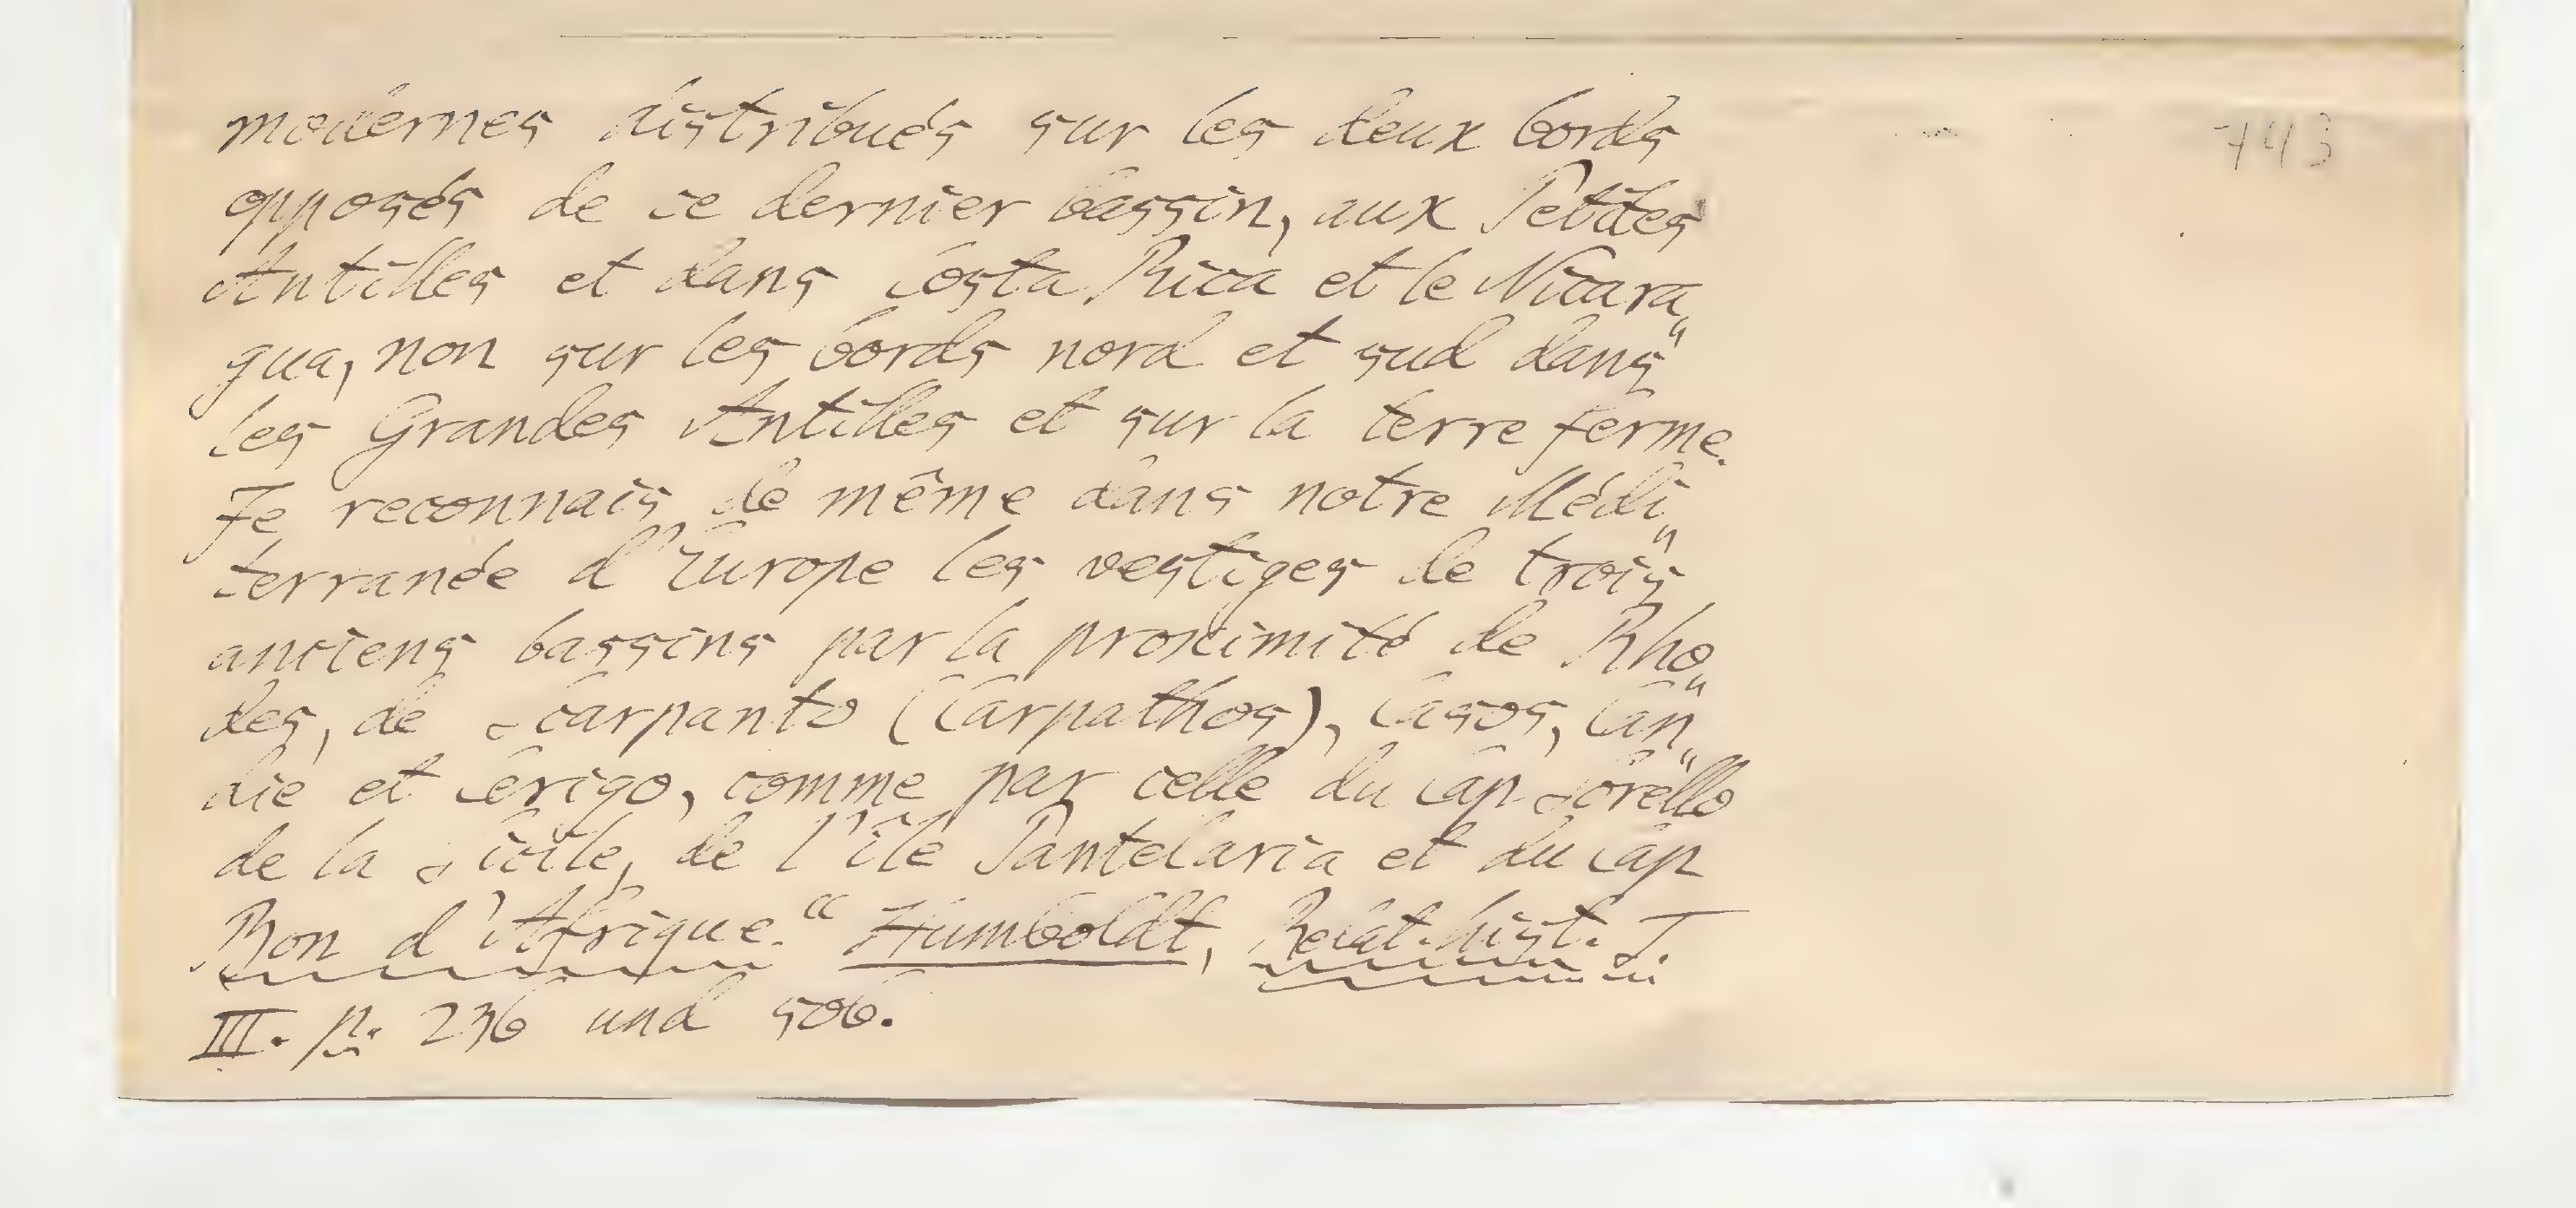 modernes distribués sur les deux bords
743
opposés de ce dernier bassin, aux Petites
Antilles et dans Costa Rica et le Nicara„
gua, non sur les bords nord et sud dans
les Grandes Antilles et sur la terre ferme.
Je reconnais de même dans notre Médi„
terranée d'Europe les vestiges de trois
anciens bassins par la proximité de Rho„
des, de Scarpanto (Carpathos), Casos, Can„
die et Cerigo, comme par celle du Cap Sorello
de la Sicile, de l'île Pantelaria et du Cap
Bon d'Afrique.“ Humboldt, Relat. hist. T.
III. p. 236 und 506.